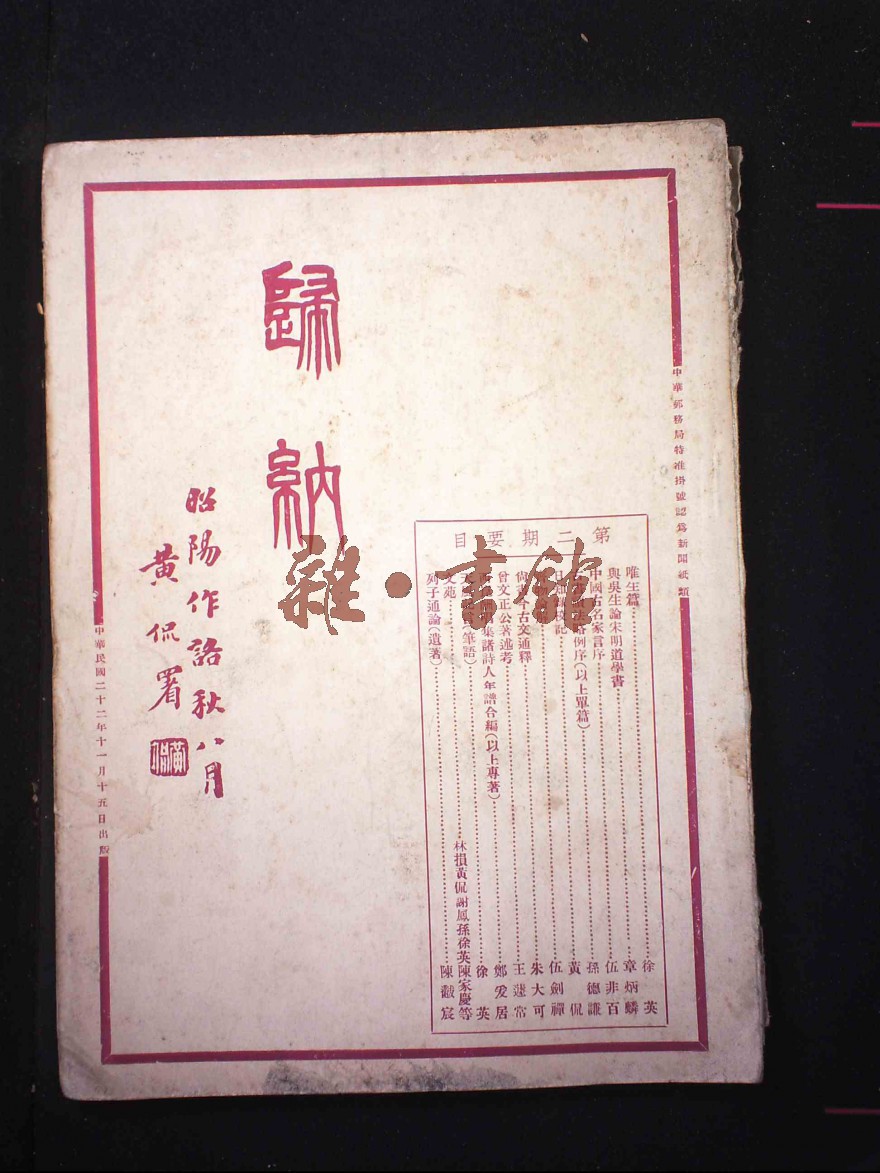 歸納
昭陽作詻秋八月
黃侃署
中華郵務局特准掛號認爲新聞紙類
中華民國二十二年十一月十五日出版
第二期要目
唯生篇 徐英
與吳生論宋明道學書 章炳麟
中國古名家言序 伍非百
略例序(以上單篇) 孫德謙
日知錄校記 黃侃
伍劍禪
朱大可
尙書今古文通釋 王蘧常
曾文正公著述考 鄭爰居
集諸詩人年譜合編(以上專著) 徐英
筆語)
文苑 林損黃侃謝鳳孫徐英陳家慶等
列子通論(遺著) 陳黻宸
雜·書館